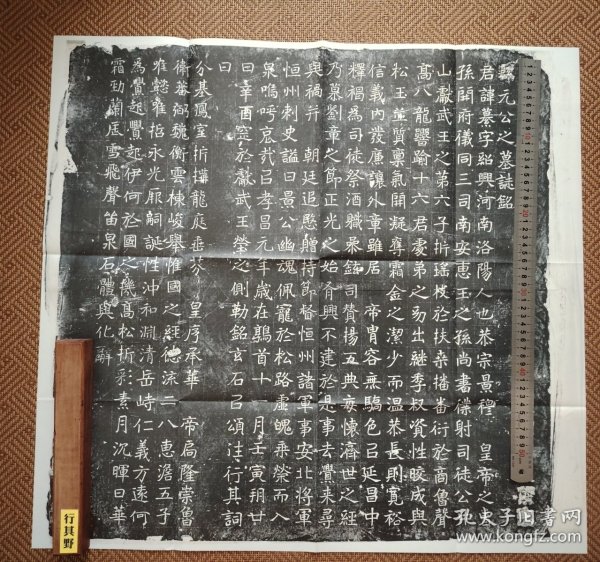 魏元公之墓誌銘
君諱纂字紹興河南洛陽人也恭宗景穆 皇帝之曾
孫開府儀同三司南安惠王之孫尚書僕射司徒公中
山獻武王之第六子折瑤枝於扶桑播番衍於商魯聲
高八龍譽踰十六君處弟之幼出繼季叔資性晈成與
松玉並質稟氣開凝專霜金之潔少而溫恭長則寬裕
信義內發廉讓外章雖居 帝胄容無驕色㠯延昌中
釋褐為司徒祭酒職参鎋司賛揚五典每懷濟世之經
乃慕劉章之節正光之始脊興不建於是事去釁来尋
與禍并 朝廷追愍贈持節督恒州諸軍事安北將軍
恒州刺史謚曰景公幽魂佩寵於松路虛魄乘榮而入
泉嗚呼哀哉㠯孝昌元年歲在鶉首十一月壬寅朔廿
日辛酉窆於獻武王塋之側勒銘玄石㠯頌徃行其詞
曰
分基鳳室折構龍庭垂芬 皇序承華 帝扃隆崇魯
衛蕃弼魏衡雲棟峻舉惟國之經德流二八惠澹五子
雍懿雍㤗永光厥嗣誕性沖和淵清岳峙仁義方遠何
為釁起釁起伊何於國之機高松折彩素月沉暉日華
霜勁蘭凋雪飛聲笛泉石體與化辭
行其野
孔夫子旧书网
www.kongfz.com